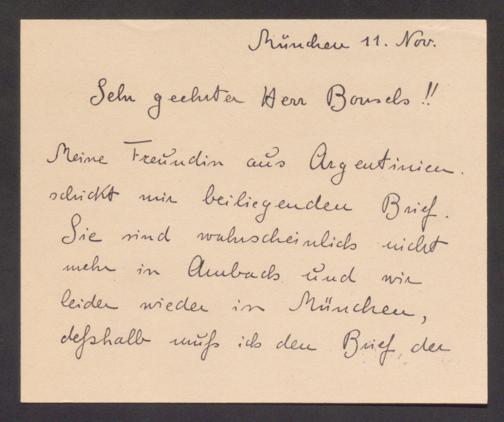 München 11. Nov.
Sehr geehrter Herr Bonsels!!
Meine Freundin aus Argentinien
schickt mir beiliegenden Brief.
Sie sind wahrscheinlich nicht
mehr in Ambach und wir
leider wieder in München,
deßhalb muß ich den Brief, der